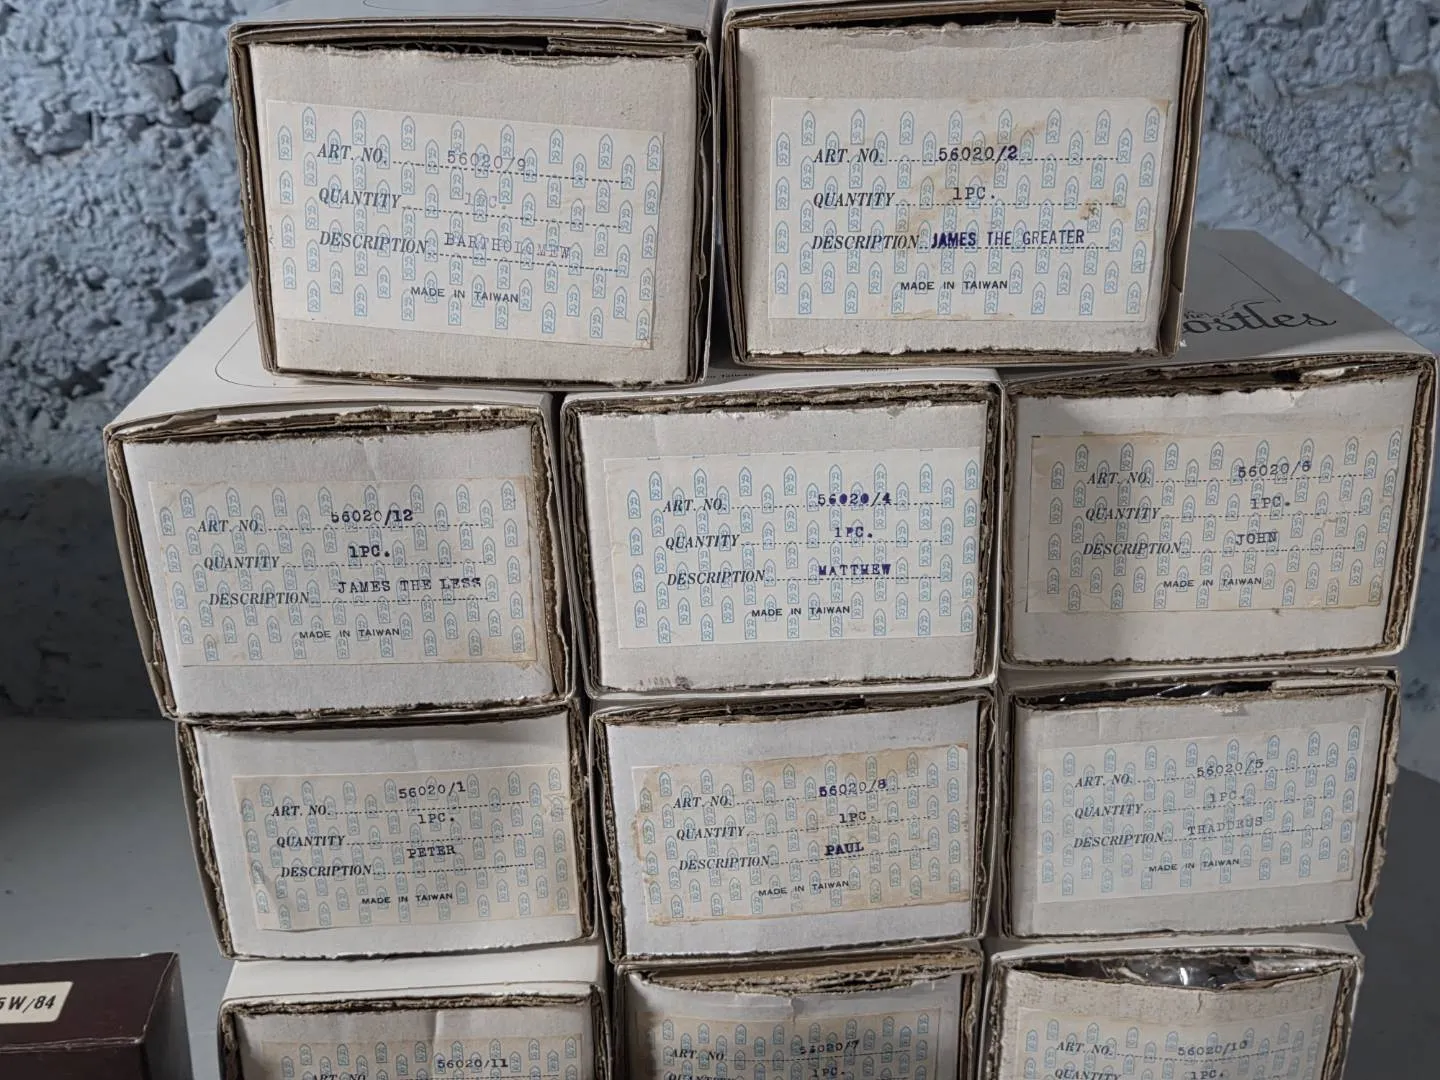 ART. NO. 56020/9
QUANTITY 1PC.
DESCRIPTION BARTHOLOMEW
MADE IN TAIWAN
ART. NO. 56020/2
QUANTITY 1PC.
DESCRIPTION JAMES THE GREATER
MADE IN TAIWAN
ART. NO. 56020/12
QUANTITY 1PC.
DESCRIPTION JAMES THE LESS
MADE IN TAIWAN
ART. NO. 56020/4
QUANTITY 1PC.
DESCRIPTION MATTHEW
MADE IN TAIWAN
ART. NO. 56020/6
QUANTITY 1PC.
DESCRIPTION JOHN
MADE IN TAIWAN
ART. NO. 56020/1
QUANTITY 1PC.
DESCRIPTION PETER
MADE IN TAIWAN
ART. NO. 56020/8
QUANTITY 1PC.
DESCRIPTION PAUL
MADE IN TAIWAN
ART. NO. 56020/5
QUANTITY 1PC.
DESCRIPTION THADDEUS
MADE IN TAIWAN
5W/84
ART. NO. 56020/11
ART. NO. 56020/7
QUANTITY 1PC.
ART. NO. 56020/10
QUANTITY 1PC.